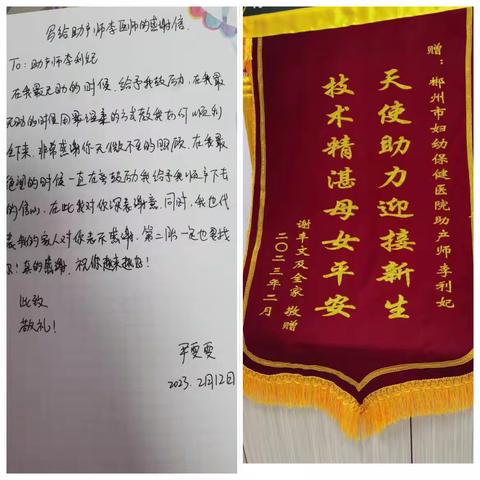 写给助产师李医师的感谢信
To:助产师李利妃
在我最无助的时候,给予我鼓励,在我最
无助的时候用最温柔的方式教我如何顺利
生下来,非常感谢你无微不至的照顾,在我最
绝望的时候一直在旁鼓励我给予我顺产下去
的信心,在此我对你深表谢意,同时,我也代
表我的家人对你表示感谢,第二胎一定也要找
你!真的感谢,祝你越来越好!
此致
敬礼!
2023.2月12日
赠:郴州市妇幼保健医院助产师李利妃
天使助力迎接新生
技术精湛母女平安
谢丰文及全家 敬赠
二〇二三年二月